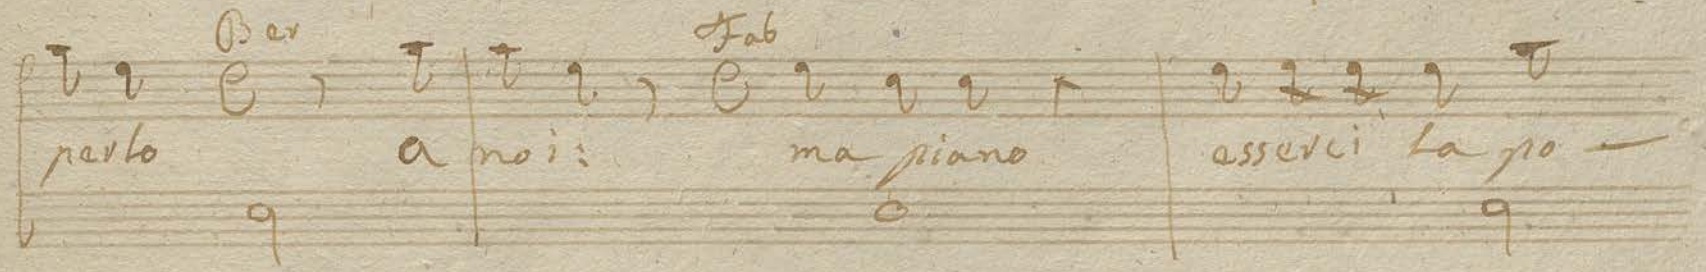 Ber Fab
perlo a noi: ma piano esserci la po —